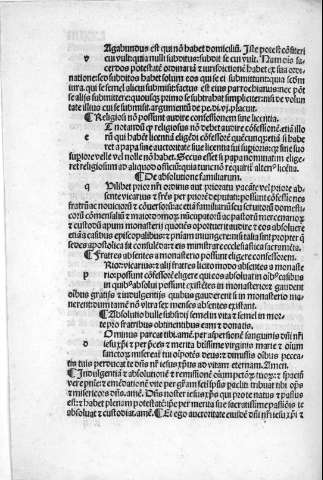 Agabundus est qui nō habet domiciliū. Iste potest cōfiteri
v cui vult: quia nulli subditus: subdit se cui vult. Nam ois sa
cerdos potestatē ordinariā ⁊ iurisdictionē habet ex sua ordi
natione: sed subditos habet solum eos qui se ei submittunt: quia
iura. qui se semel alicui submisit: factus est eius parrochianus: nec pōt
se alijs submittere: quousqz primo se subtrahat simpliciter: nisi de volun
tate illius cui se submisit. argumentū
¶ Religiosi nō possunt audire confessionem sine licentia.
T notandū q religiosus nō debet audire cōfessionē etiā illo
e rū qui habēt licentiā eligēdi cōfessorē quēcunqz nisi is habe
ret a papa sine auctoritate sue licentia sui superioris: qz sine suo
superiore velle vel nolle nō habet. Secus esset si papa nominatim elige
ret religiosum ad aliquod officiū: quia tunc nō requirit alteri licētia.
¶ De absolutione familiarum.
Uilibet prior nrī ordinis aut prioratu vacāte vel priore ab
q sente vicarius ⁊ frēs per priorē deputati: possūt cōfessiones
fratrū ac nouicioru ⁊ cōuersoru: ac etiā familiariū seu seruitorū domesti
corū cōmensaliū ⁊ maiorū: nūcupatorū ac pastorū mercenariorū
⁊ custodū apum monasterij quoties oportuerit audire ⁊ eos absoluere
etiā a casibus episcopalibus: preterqz iniungere nisi talia sint propter q
sedes apostolica sit consulēda: et eis ministrare ecclesiastica sacramēta.
¶ Fratres absentes a monasterio possunt eligere confessorem.
Rior: vicarius: ⁊ alij fratres licito modo absentes a monaste
p rio: possunt cōfessorē eligere qui eos absoluat in oibus casibus
in quibus absolui possunt existētes in monasterio: ⁊ gaudent
oibus gratijs ⁊ indulgentijs quibus gauderent si in monasterio ma
nerent: dum tamē nō vltra sex menses absentes existant.
¶ Absolutio bulle subsidij semel in vita ⁊ semel in mor
tis pro fratribus obtinentibus eam ⁊ donatis.
O minus parcat tibi. amē. per aspersionē sanguinis dnī nrī
d iesu xpi: ⁊ per preces ⁊ merita btissime virginis marie ⁊ oium
sanctorz misereat tui oipotēs deus: ⁊ dimissis oibus pecca
tis tuis perducat te dns nr iesus xpus ad vitam eternam. Amen.
¶ Indulgentiā ⁊ absolutionē ⁊ remissionē oium pctorz tuorz: ⁊ spaciū
vere pniē: ⁊ emēdationē vite per grām sctī spus pacliti tribuat tibi opīs
⁊ misericors dns. amē. Dns noster iesus xpus qui pro te natus ⁊ passus
est: ⁊ habet plenam potestatē: ipse per merita sue sacratissime passiōis te
absoluat ⁊ custodiat. amē. ¶ Et ego auctoritate eiusdē dnī nrī iesu xpi ⁊